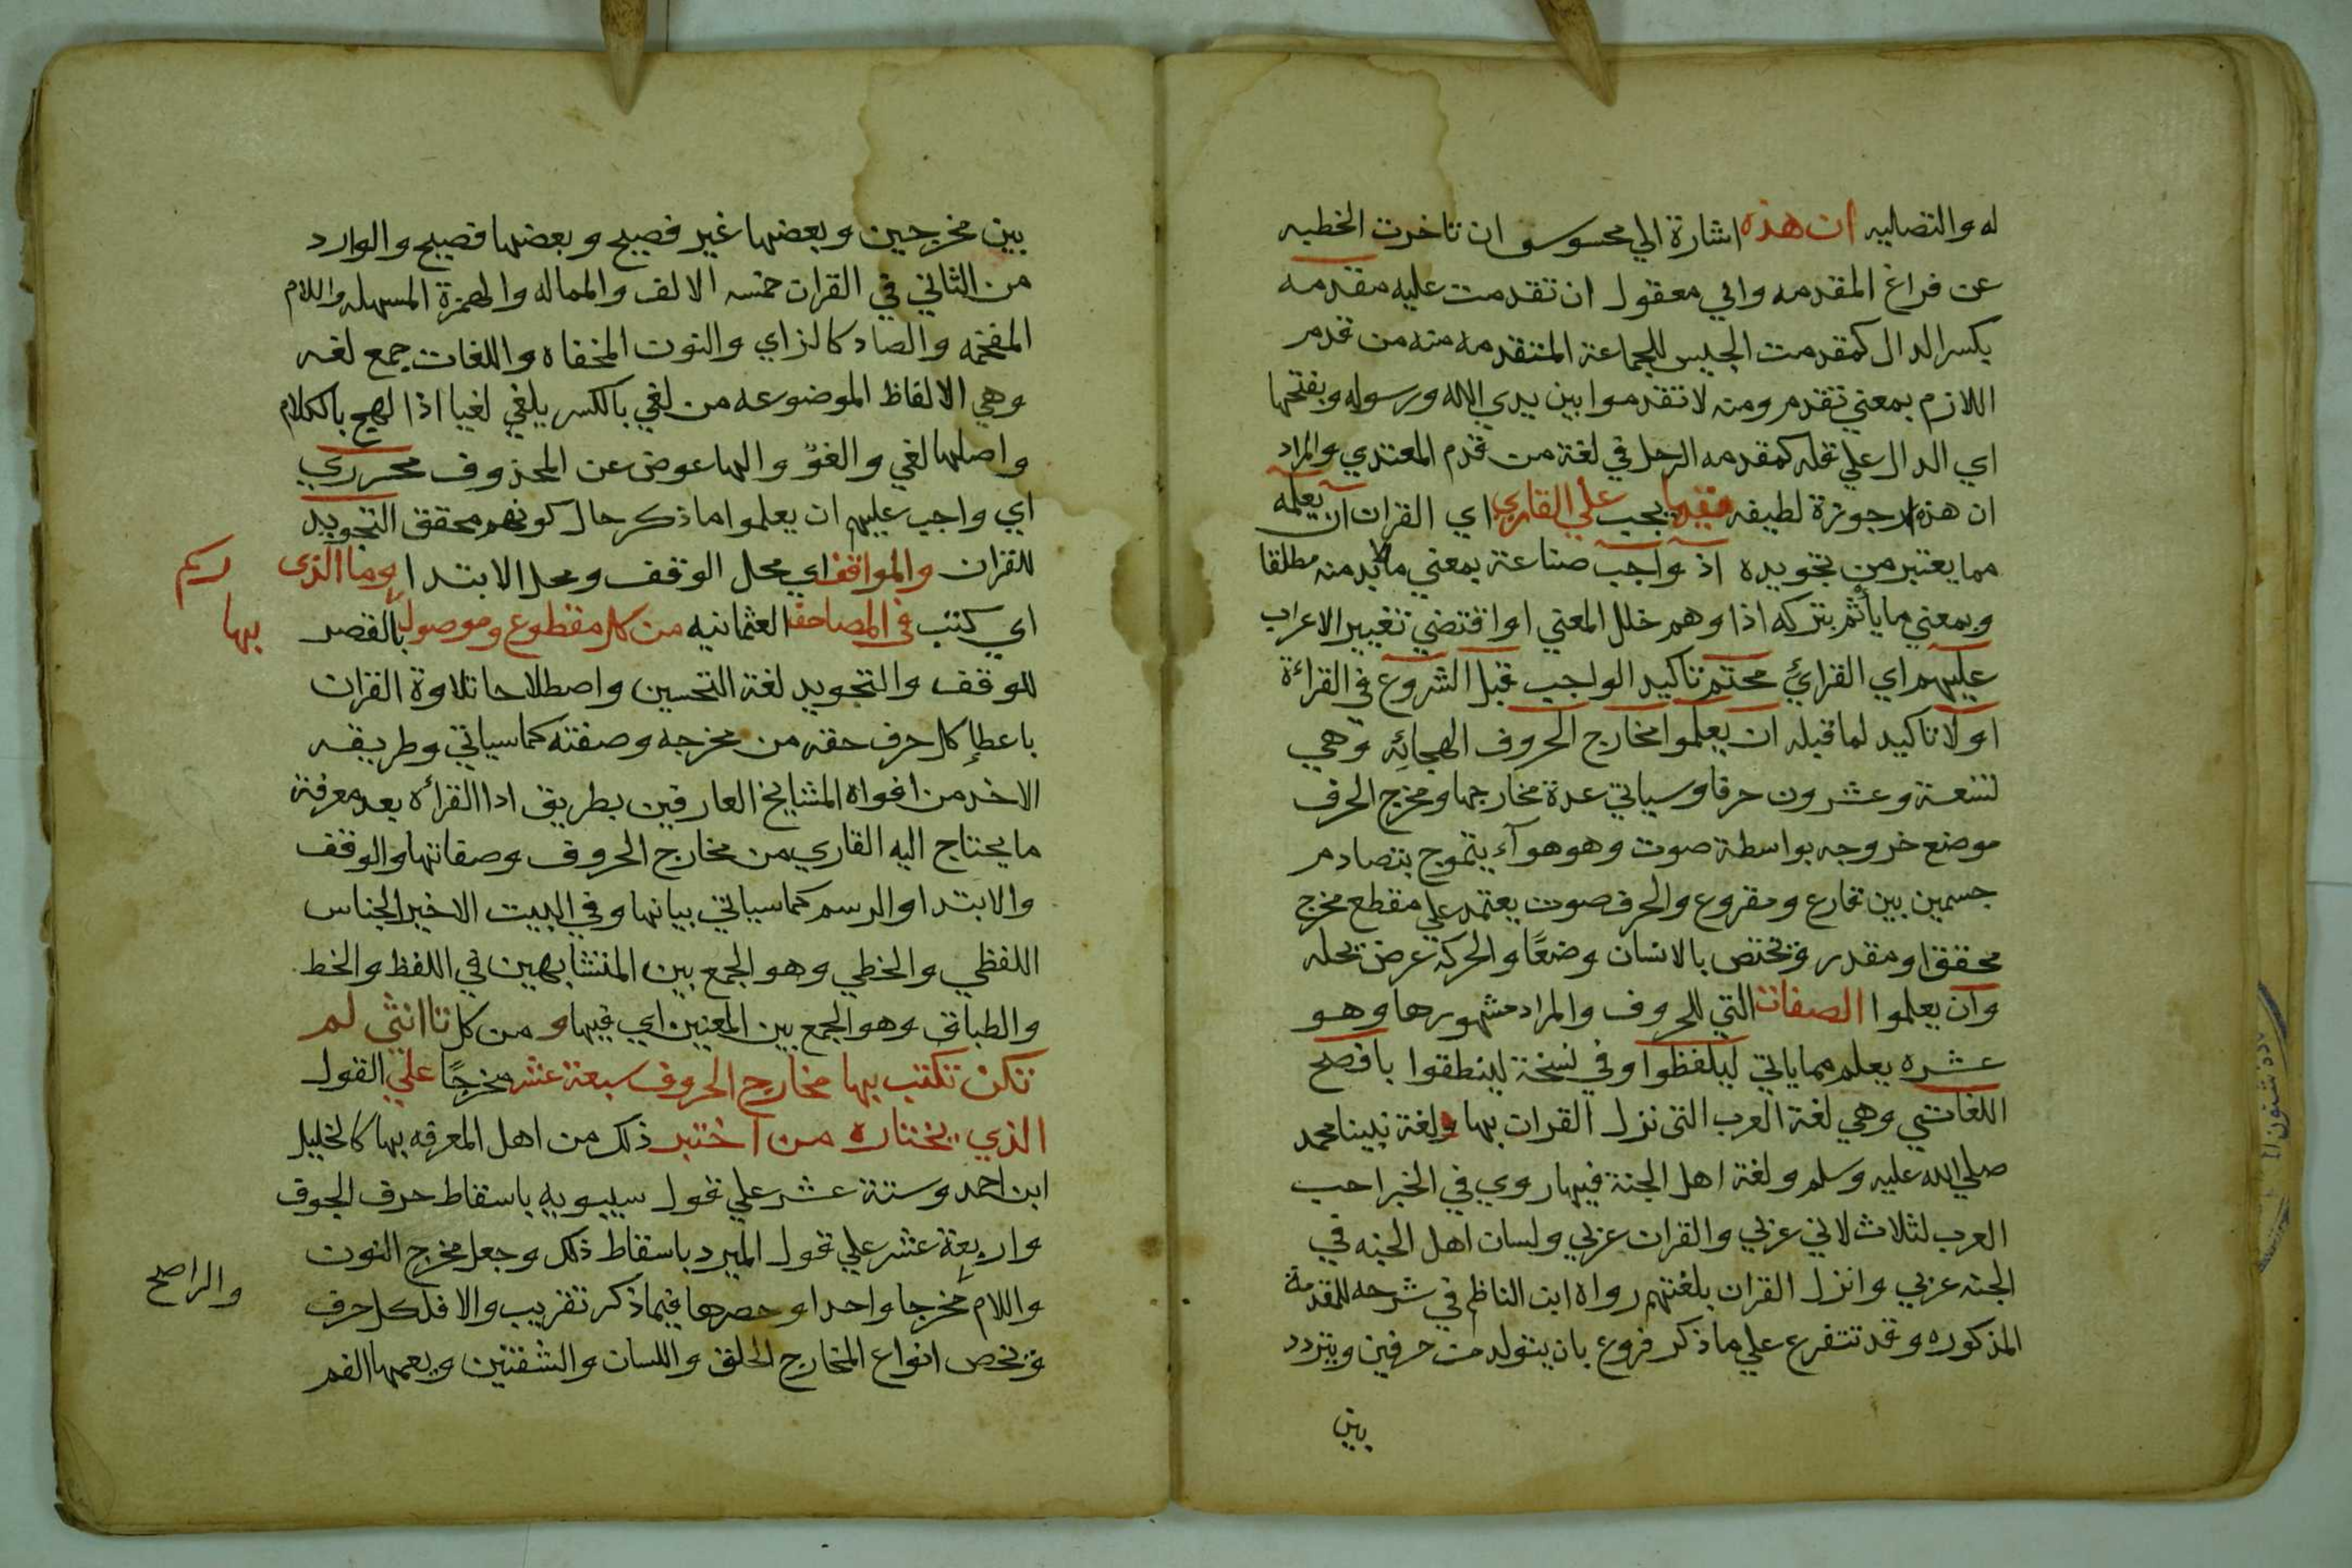 له والتصاليه ان هذه اشارة الي محسوس ان تاخرت الخطبه
عن فراغ المقدمه والي معقول ان تقدمت عليه مقدمه
بكسر الدال كمقدمت الجيس للجماعة المتقدمه منه من قدم
اللازم بمعني تقدم ومنه لا تقدموا بين يدي الاله ورسوله وبفتحها
اي الدال علي قله كمقدمه الرحل في لغة من قدم المعتدي والمراد
ان هذه ارجوزة لطيفه فيما يجب علي القاري اي القران ان يعلمه
مما يعتبر من تجويده اذ واجب صناعة بمعني مالابد منه مطلقا
وبمعني ما يأثم بتركه اذا وهم خلل المعني او اقتضي تغيير الاعراب
عليهم اي القرائ محتم تاكيد الواجب قبل الشروع في القراءة
اولا تاكيد لما قبله ان يعلموا مخارج الحروف الهجائه وهي
تسعة وعشرون حرفا وسياتي عدة مخارجها ومخرج الحرف
موضع خروجه بواسطة صوت وهو هوآء يتموج بتصادم
جسمين بين قارع ومقروع والحرف صوت يعتمد علي مقطع مخرج
محققا ومقدر وتختص بالانسان وضعًا والحركة عرض تحله
وان يعلموا الصفات التي للحروف والمراد مشهورها وهو
عشره يعلم مما ياتي ليلفظوا وفي نسخة لينطقوا بافصح
اللغات وهي لغة العرب التي نزل القران بها ولغة نبينا محمد
صلي الله عليه وسلم ولغة اهل الجنة فيها روي في الخبر احب
العرب لثلاث لاني عربي والقران عربي ولسان اهل الجنه في
الجنه عربي وانزل القران بلغتهم رواه ابن الناظم في شرحه للمقدمة
المذكوره وقد تتفرع علي ما ذكر فروع بان يتولد من حرفين ويتردد
بين
بين مخرجين وبعضها غير فصيح وبعضها فصيح والوارد
من الثاني في القران خمسه الالف والمماله والهمزة المسهله واللام
المفخمه والصاد كالزاي والنون المخفاه واللغات جمع لغه
وهي الالفاظ الموضوعه من لغي بالكسر يلغي لغيا اذا لهج بالكلام
واصلها لغي والغو والها عوض عن المحذوف محرري
اي واجب عليهم ان يعلموا ما ذكر حال كونهم محقق التجويد
للقران والمواقف اي محل الوقف ومحل الابتدا وما الذى رسم
اي كتب في المصاحف العثمانيه من كل مقطوع وموصول بها بالقصر
للوقف والتجويد لغة التحسين واصطلاحا تلاوة القران
باعطإ كل حرف حقه من مخرجه وصفته كما سياتي وطريقه
الاخد من افواه المشايخ العارفين بطريق ادا القرأه بعد معرفة
ما يحتاج اليه القاري من مخارج الحروف وصفاتها والوقف
والابتدا والرسم كما سياتي بيانها وفي البيت الاخير الجناس
اللفظي والخطي وهو الجمع بين المتشابهين في اللفظ والخط
والطباق وهو الجمع بين المعنين اي فيها و من كل تا انثي لم
تكن تكتب بها مخارج الحروف سبعة عشر مخرجًا علي القول
الذي يختاره من اختبر ذلك من اهل المعرفه بها كالخليل
ابن احمد وستة عشر علي قول سيبويه باسقاط حرف الجوف
واربعة عشر علي قول المبرد باسقاط ذلك وجعل مخرج النون
واللام مخرجا واحدا وحصرها فيما ذكر تقريب والا فلكل حرف
وتخص انواع المخارج الحلق واللسان والشفتين ويعمها الفم